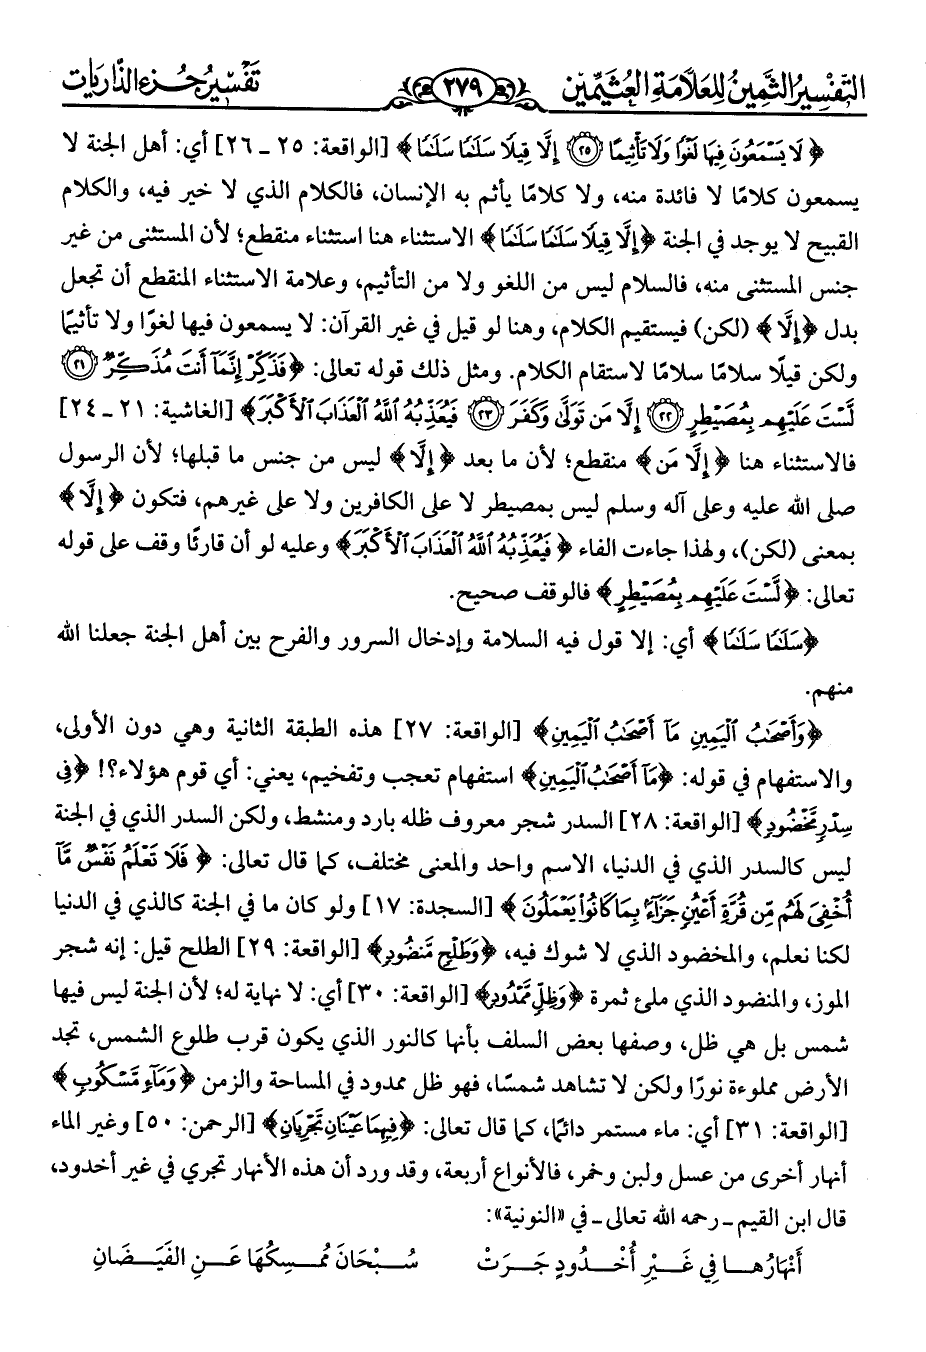 التفسير الثمين للعلامة العثيمين ٢٧٩ تفسير جزء الذاريات
﴿لَا يَسْمَعُونَ فِيهَا لَغْوًا وَلَا تَأْثِيمًا ۝٢٥ إِلَّا قِيلًا سَلَـٰمًا سَلَـٰمًا﴾ [الواقعة: ٢٥ ـ ٢٦] أي: أهل الجنة لا
يسمعون كلامًا لا فائدة منه، ولا كلامًا يأثم به الإنسان، فالكلام الذي لا خير فيه، والكلام
القبيح لا يوجد في الجنة ﴿إِلَّا قِيلًا سَلَـٰمًا سَلَـٰمًا﴾ الاستثناء هنا استثناء منقطع؛ لأن المستثنى من غير
جنس المستثنى منه، فالسلام ليس من اللغو ولا من التأثيم، وعلامة الاستثناء المنقطع أن تجعل
بدل ﴿إِلَّا﴾ (لكن) فيستقيم الكلام، وهنا لو قيل في غير القرآن: لا يسمعون فيها لغوًا ولا تأثيمًا
ولكن قيلًا سلامًا سلامًا لاستقام الكلام. ومثل ذلك قوله تعالى: ﴿فَذَكِّرْ إِنَّمَآ أَنتَ مُذَكِّرٌ ۝٢١
لَّسْتَ عَلَيْهِم بِمُصَيْطِرٍ ۝٢٢ إِلَّا مَن تَوَلَّىٰ وَكَفَرَ ۝٢٣ فَيُعَذِّبُهُ ٱللَّهُ ٱلْعَذَابَ ٱلْأَكْبَرَ﴾ [الغاشية: ٢١ ـ ٢٤]
فالاستثناء هنا ﴿إِلَّا مَن﴾ منقطع؛ لأن ما بعد ﴿إِلَّا﴾ ليس من جنس ما قبلها؛ لأن الرسول
صلى الله عليه وعلى آله وسلم ليس بمصيطر لا على الكافرين ولا على غيرهم، فتكون ﴿إِلَّا﴾
بمعنى (لكن)، ولهذا جاءت الفاء ﴿فَيُعَذِّبُهُ ٱللَّهُ ٱلْعَذَابَ ٱلْأَكْبَرَ﴾ وعليه لو أن قارئًا وقف على قوله
تعالى: ﴿لَّسْتَ عَلَيْهِم بِمُصَيْطِرٍ﴾ فالوقف صحيح.
﴿سَلَـٰمًا سَلَـٰمًا﴾ أي: إلا قول فيه السلامة وإدخال السرور والفرح بين أهل الجنة جعلنا الله
منهم.
﴿وَأَصْحَـٰبُ ٱلْيَمِينِ مَآ أَصْحَـٰبُ ٱلْيَمِينِ﴾ [الواقعة: ٢٧] هذه الطبقة الثانية وهي دون الأولى،
والاستفهام في قوله: ﴿مَآ أَصْحَـٰبُ ٱلْيَمِينِ﴾ استفهام تعجب وتفخيم، يعني: أي قوم هؤلاء؟! ﴿فِى
سِدْرٍ مَّخْضُودٍ﴾ [الواقعة: ٢٨] السدر شجر معروف ظله بارد ومنشط، ولكن السدر الذي في الجنة
ليس كالسدر الذي في الدنيا، الاسم واحد والمعنى مختلف، كما قال تعالى: ﴿فَلَا تَعْلَمُ نَفْسٌ مَّآ
أُخْفِىَ لَهُم مِّن قُرَّةِ أَعْيُنٍ جَزَآءًۢ بِمَا كَانُوا۟ يَعْمَلُونَ﴾ [السجدة: ١٧] ولو كان ما في الجنة كالذي في الدنيا
لكنا نعلم، والمخضود الذي لا شوك فيه، ﴿وَطَلْحٍ مَّنضُودٍ﴾ [الواقعة: ٢٩] الطلح قيل: إنه شجر
الموز، والمنضود الذي ملئ ثمرة ﴿وَظِلٍّ مَّمْدُودٍ﴾ [الواقعة: ٣٠] أي: لا نهاية له؛ لأن الجنة ليس فيها
شمس بل هي ظل، وصفها بعض السلف بأنها كالنور الذي يكون قرب طلوع الشمس، تجد
الأرض مملوءة نورًا ولكن لا تشاهد شمسًا، فهو ظل ممدود في المساحة والزمن ﴿وَمَآءٍ مَّسْكُوبٍ﴾
[الواقعة: ٣١] أي: ماء مستمر دائمًا، كما قال تعالى: ﴿فِيهِمَا عَيْنَانِ تَجْرِيَانِ﴾ [الرحمن: ٥٠] وغير الماء
أنهار أخرى من عسل ولبن وخمر، فالأنواع أربعة، وقد ورد أن هذه الأنهار تجري في غير أخدود،
قال ابن القيم ـ رحمه الله تعالى ـ في «النونية»:
أَنْهَارُهَا فِي غَيْرِ أُخْدُودٍ جَرَتْ سُبْحَانَ مُمْسِكُهَا عَنِ الفَيَضَانِ